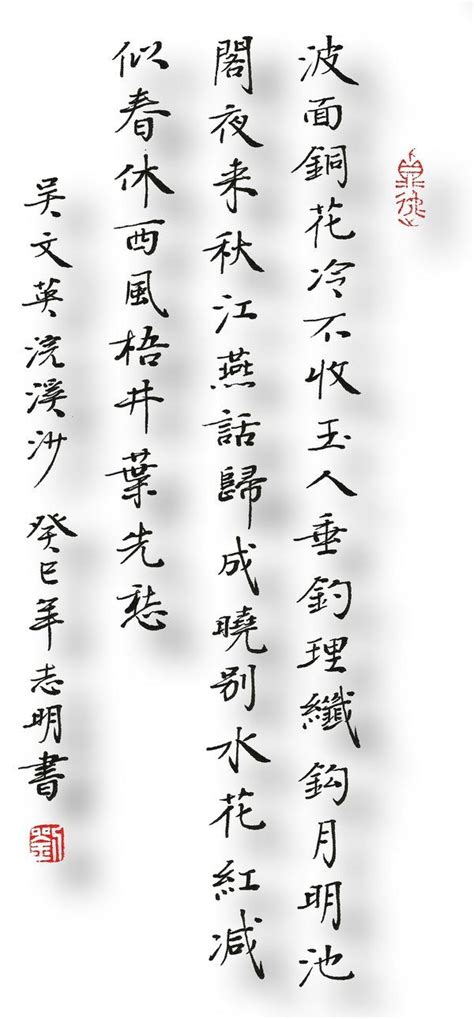 波面銅花冷不收玉人垂釣理纖鈎月明池
閣夜来秋江燕話歸成曉别水花紅减
似春休西風梧井葉先愁
吴文英浣溪沙 癸巳年志明書
劉